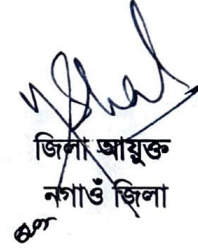 জিলা আয়ুক্ত
নগাওঁ জিলা